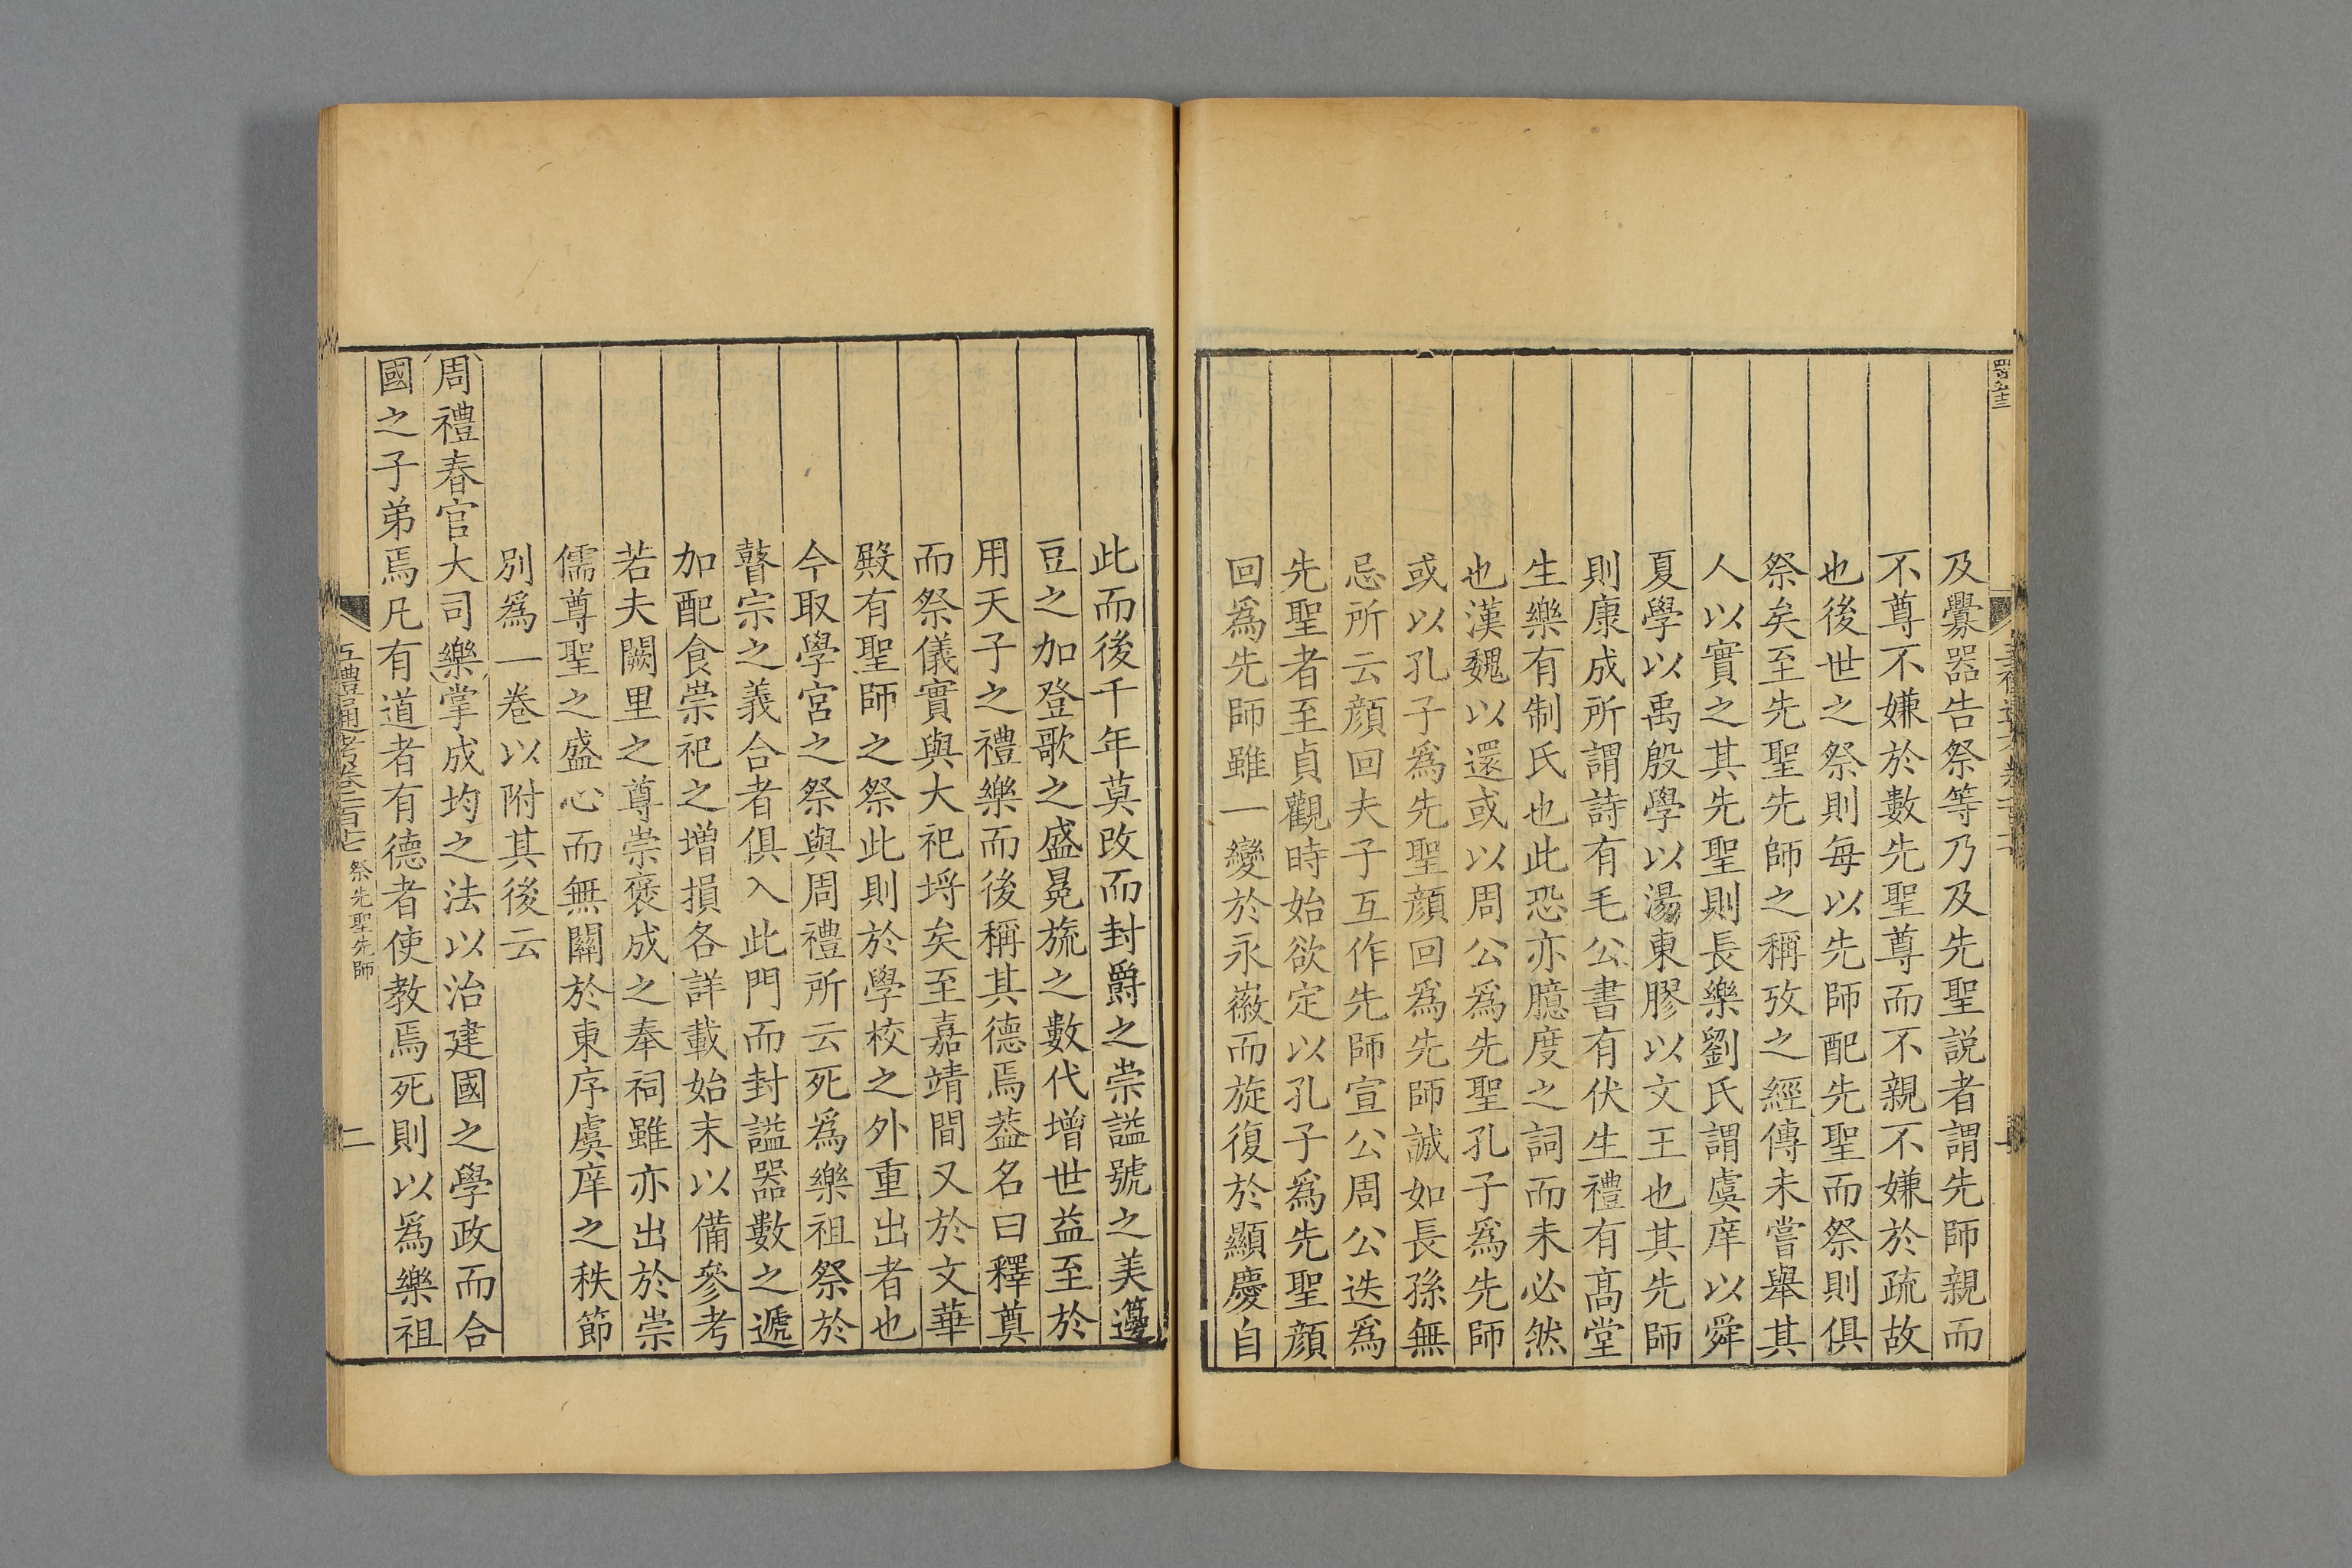 及釁器告祭等乃及先聖説者謂先師親而
不尊不嫌於數先聖尊而不親不嫌於疏故
也後世之祭則每以先師配先聖而祭則俱
祭矣至先聖先師之稱攷之經傳未嘗舉其
人以實之其先聖則長樂劉氏謂虞庠以舜
夏學以禹殷學以湯東膠以文王也其先師
則康成所謂詩有毛公書有伏生禮有髙堂
生樂有制氏也此恐亦臆度之詞而未必然
也漢魏以還或以周公為先聖孔子為先師
或以孔子爲先聖顔回爲先師誠如長孫無
忌所云顔回夫子互作先師宣公周公迭爲
先聖者至貞觀時始欲定以孔子爲先聖顔
回爲先師雖一變於永徽而旋復於顯慶自
此而後千年莫改而封爵之崇謚號之美籩
豆之加登歌之盛冕旒之數代增世益至於
用天子之禮樂而後稱其德焉葢名曰釋奠
而祭儀實與大祀埒矣至嘉靖間又於文華
殿有聖師之祭此則於學校之外重出者也
今取學宮之祭與周禮所云死爲樂祖祭於
瞽宗之義合者俱入此門而封謚器數之遞
加配食崇祀之増損各詳載始末以備參考
若夫闕里之尊崇褒成之奉祠雖亦出於崇
儒尊聖之盛心而無關於東序虞庠之秩節
別爲一卷以附其後云
周禮春官大司樂掌成均之法以治建國之學政而合
國之子弟焉凡有道者有德者使教焉死則以爲樂祖
五禮通考卷一百十七 祭先聖先師 二